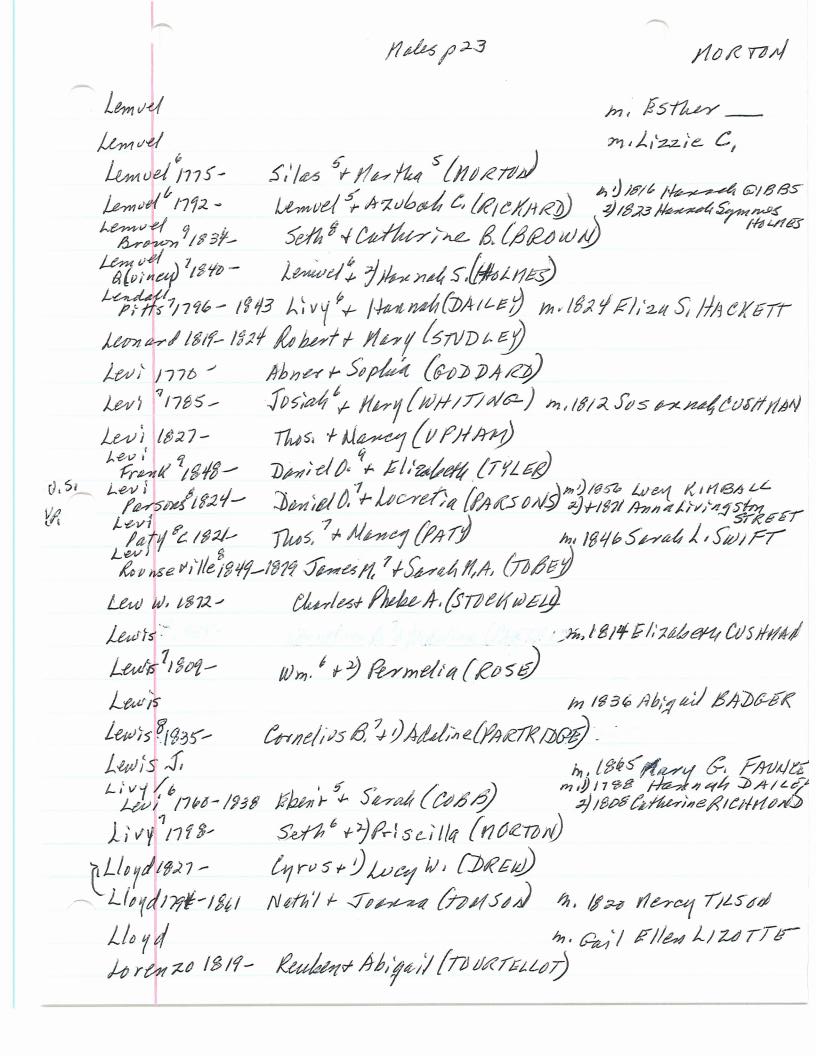 Males p 23 NORTON
Lemuel m. Esther ___
Lemuel m. Lizzie C.
Lemuel⁶ 1775- Silas⁵ + Martha⁵ (NORTON)
Lemuel⁶ 1792- Lemuel⁵ + Azubah C. (RICKARD) m 1) 1816 Hannah GIBBS
2) 1823 Hannah Symmes
HOLMES
Lemuel
Brown⁹ 1834- Seth⁸ + Catherine B. (BROWN)
Lemuel
Q(uincy)⁷ 1840- Lemuel⁶ + 2) Hannah S. (HOLMES)
Lendall
Pitts⁷ 1796-1843 Livy⁶ + Hannah (DAILEY) m. 1824 Eliza S. HACKETT
Leonard 1819-1824 Robert + Mary (STUDLEY)
Levi 1770- Abner + Sophia (GODDARD)
Levi⁷ 1785- Josiah⁶ + Mary (WHITING) m. 1812 Susannah CUSHMAN
Levi 1827- Thos. + Nancy (UPHAM)
Levi
Frank⁹ 1848- Daniel O.⁹ + Elizabeth (TYLER)
U.S. Levi
V.P. Parsons⁸ 1824- Daniel O.⁷ + Locretia (PARSONS) m 1) 1856 Lucy KIMBALL
2) + 1871 Anna Livingstm
STREET
Levi
Paty⁸ c 1821- Thos.⁷ + Nancy (PATY) m. 1846 Sarah L. SWIFT
Levi
Rounseville⁸ 1849-1879 James M.⁷ + Sarah M.A. (TOBEY)
Lew W. 1872- Charles + Phebe A. (STOCKWELL)
Lewis m. 1814 Elizabeth CUSHMAN
Lewis⁷ 1809- Wm.⁶ + 2) Permelia (ROSE)
Lewis m 1836 Abigail BADGER
Lewis⁸ 1835- Cornelius B.⁷ + 1) Adeline (PARTRIDGE)
Lewis J. m. 1865 Mary G. FAUNCE
Livy/
Levi⁶ 1760-1838 Eben'r⁵ + Sarah (COBB) m. 1) 1788 Hannah DAILEY
2) 1808 Catherine RICHMOND
Livy⁷ 1798- Seth⁶ + 2) Priscilla (NORTON)
Lloyd 1827- Cyrus + 1) Lucy W. (DREW)
Lloyd -1861 Nath'l + Joanna (TOMSON) m. 1820 Mercy TILSON
Lloyd m. Gail Ellen LIZOTTE
Lorenzo 1819- Reuben + Abigail (TOURTELLOT)